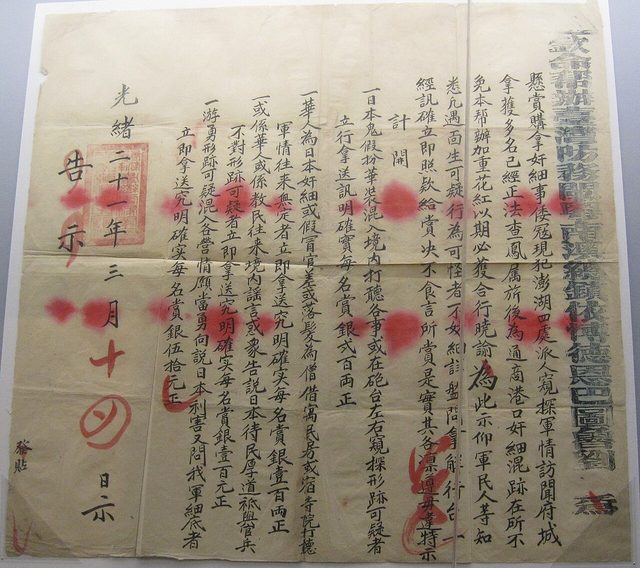 欽命幫辦臺灣防務閩粵南澳總鎮依博德恩巴圖魯劉 為
懸賞購拿奸細事倭寇現犯澎湖四處派人窺探軍情訪聞府城
拿獲多名已經正法查鳳属旂後為通商港口奸細混跡在所不
免本幫辦加重花紅以期必獲合行曉諭為此示仰軍民人等知
悉凡遇面生可疑行為可怪者不妨細詳盤問拿解行台一
經訊確立即照欵給賞決不食言所賞是實其各凜遵毋違特示
計開
一日本鬼假扮華裝混入境内打聽各事或在砲台左右窺探形跡可疑者
立行拿送訊明確實每名賞銀弍百両正
一華人為日本奸細或假冒官差或落髮為僧借寓民房或宿寺院打聽
軍情往来無定者立即拿送究明確实每名賞銀壹百両正
一或係華人或係教民往来境内謡言或 告説日本待民厚道祗與官兵
不對形跡可疑者立即拿送究明確实每名賞銀壹百元正
一游勇形跡可疑混入各營情願當勇向説日本利害又問我軍細底者
立即拿送究明確实每名賞銀伍拾元正
光緒二十一年三月十四日示
告示
貼